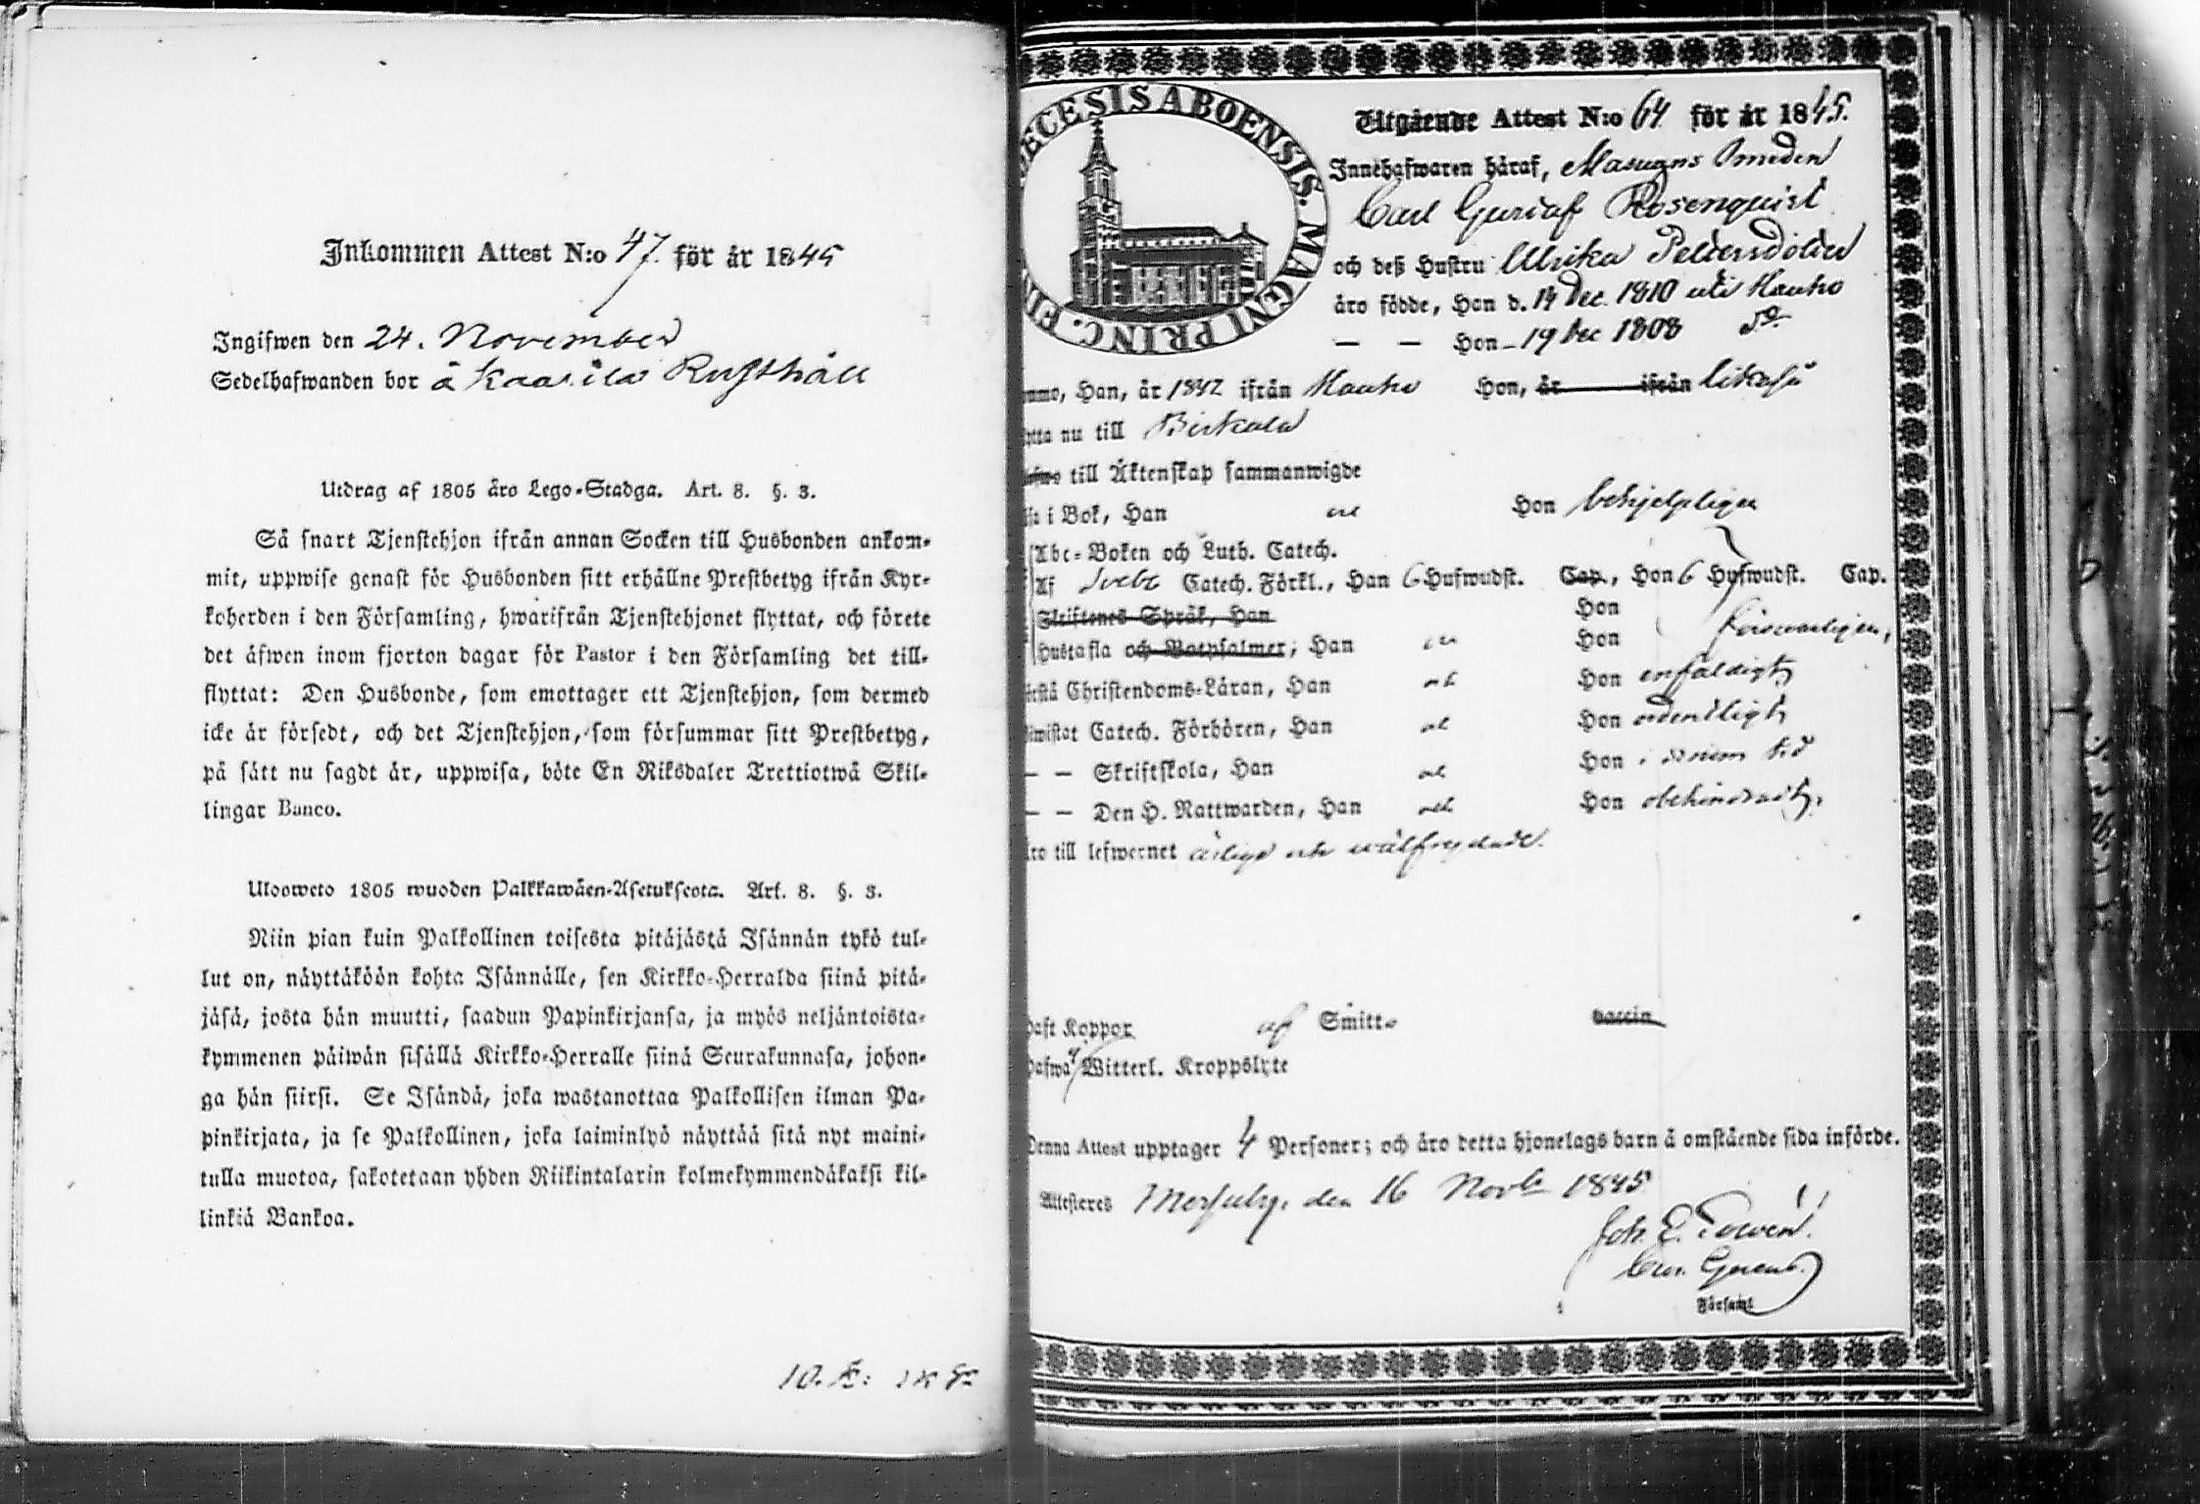 Inkommen Attest N:o 47. för år 1845
Ingifwen den 24. November
Sedelhafwanden bor å Kaarila Rusthåll
Utdrag af 1805 åro Lego-Stadga. Art. 8. §. 3.
Så snart Tjenstehjon ifrån annan Socken till Husbonden ankom-
mit, uppwise genast för Husbonden sitt erhållne Prestbetyg ifrån Kyr-
koherden i den Församling, hwarifrån Tjenstehjonet flyttat, och förete
det äfwen inom fjorton dagar för Pastor i den Församling det till-
flyttat: Den Husbonde, som emottager ett Tjenstehjon, som dermed
icke är försedt, och det Tjenstehjon, som försummar sitt Prestbetyg,
på sätt nu sagdt är, uppwisa, böte En Riksdaler Trettiotwå Skil-
lingar Banco.
Ulooweto 1805 wuoden Palkkawäen-Asetuksesta. Art. 8. §. 3.
Niin pian kuin Palkollinen toisesta pitäjästä Isännän tykö tul-
lut on, näyttäköön kohta Isännälle, sen Kirkko-Herralda siinä pitä-
jäsä, josta hän muutti, saadun Papinkirjansa, ja myös neljäntoista-
kymmenen päiwän sisällä Kirkko-Herralle siinä Seurakunnasa, johon-
ga hän siirsi. Se Isändä, joka wastanottaa Palkollisen ilman Pa-
pinkirjata, ja se Palkollinen, joka laiminlyö näyttää sitä nyt maini-
tulla muotoa, sakotetaan yhden Riikintalarin kolmekymmendäkaksi kil-
linkiä Bankoa.
ECESIS ABOENSIS. MAGNI PRINC. FI
Utgående Attest N:o 64 för år 1845.
Innehafwaren häraf, Masugns Smeden
Carl Gustaf Rosenquist
och deß Hustru Ulrika Pettersdotter
äro födde, Han d. 14 Dec. 1810 uti Hauho
— — Hon - 19 Dec 1808 do
mmo, Han, år 1842 ifrån Hauho Hon, år ifrån likaså
ytta nu till Birkala
till Äktenskap sammanwigde
i Bok, Han och Hon behjelpligen
Abc-Boken och Luth. Catech.
Af Svebi Catech. Förkl., Han 6 Hufwudst. Cap., Hon 6 Hufwudst. Cap.
Skriftenes Språk, Han Hon
Hustafla och Botpsalmer; Han och Hon försvarligen,
Christendoms-Läran, Han och Hon enfaldigt,
Catech. Förhören, Han och Hon ordentligt,
— — Skriftskola, Han och Hon i sinom tid
— — Den H. Nattwarden, Han och Hon obehindradt,
äro till lefwernet ärliga och wälfrejdade.
haft Koppor af Smitta vaccin
hafwa Witterl. Kroppslyte
Denna Attest upptager 4 Personer; och äro detta hjonelags barn å omstående sida införde.
Attesteras Merjulz, den 16 Novb 1845
Joh. E.
Församl